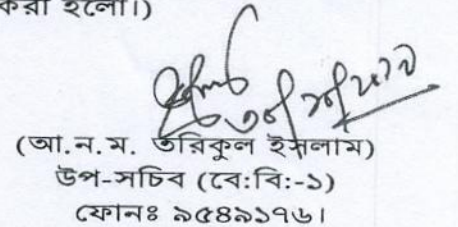 করা হলো।)
(আ.ন.ম. তরিকুল ইসলাম)
উপ-সচিব (বে:বি:-১)
ফোনঃ ৯৫৪৯১৭৬।